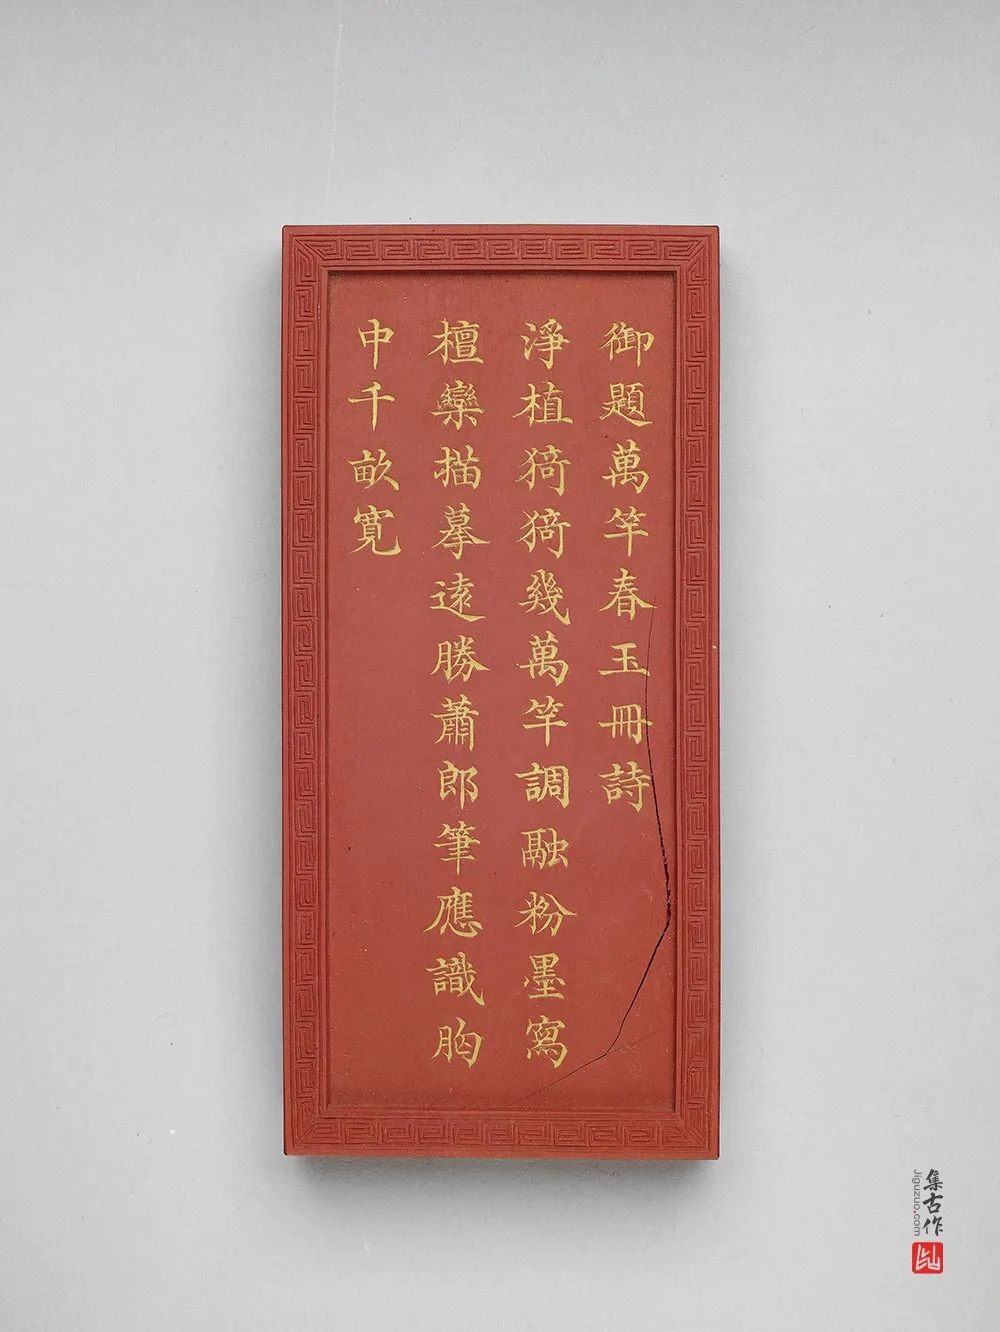 御題萬竿春玉冊詩
淨植猗猗幾萬竿調融粉墨寫
檀欒描摹遠勝蕭郎筆應識胸
中千畝寬
集古作
Jiguzuo.com